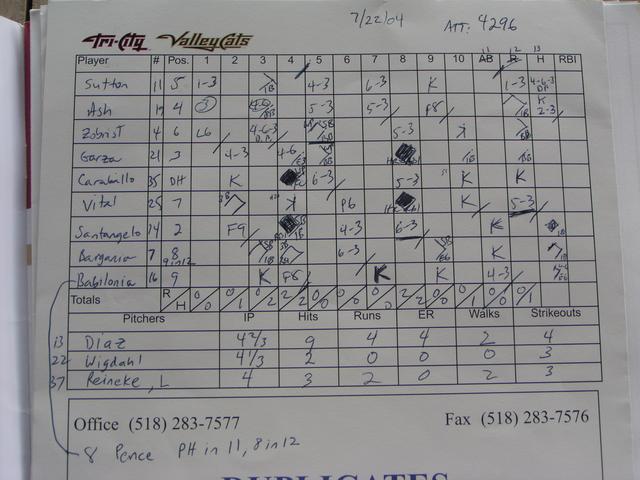 7/22/04 ATT: 4296
Tri-City ValleyCats
11 12 13
Player # Pos. 1 2 3 4 5 6 7 8 9 10 AB R H RBI
Sutton 11 5 1-3 1B 4-3 6-3 K 1-3 4-6-3 DP
Ash 17 4 3 5-3 5-3 F8 1B K 2-3
Zobrist 4 6 L6 4-6-3 D.P. 5-3 K
Garza 21 3 4-3 4-6
Caraballo 35 DH K 6-3 5-3 K K
Vital 25 7 K P6 K 5-3
Santangelo 14 2 F9 4-3 6-3 K
Bargaria 7 8 6-3
9 in 12
Babilonia 16 9 K F8 K K 4-3
Totals R H 0/0 0/1 0/2 2/2 0/0 0/0 0/0 2/2 0/0 0/1 0/0 0/1
Pitchers IP Hits Runs ER Walks Strikeouts
13 Diaz 4 2/3 9 4 4 2 4
22 Wigdahl 4 1/3 2 0 0 0 3
37 Reineke, L 4 3 2 0 2 3
Office (518) 283-7577 Fax (518) 283-7576
8 Pence PH in 11, 8 in 12
DUPLICATES